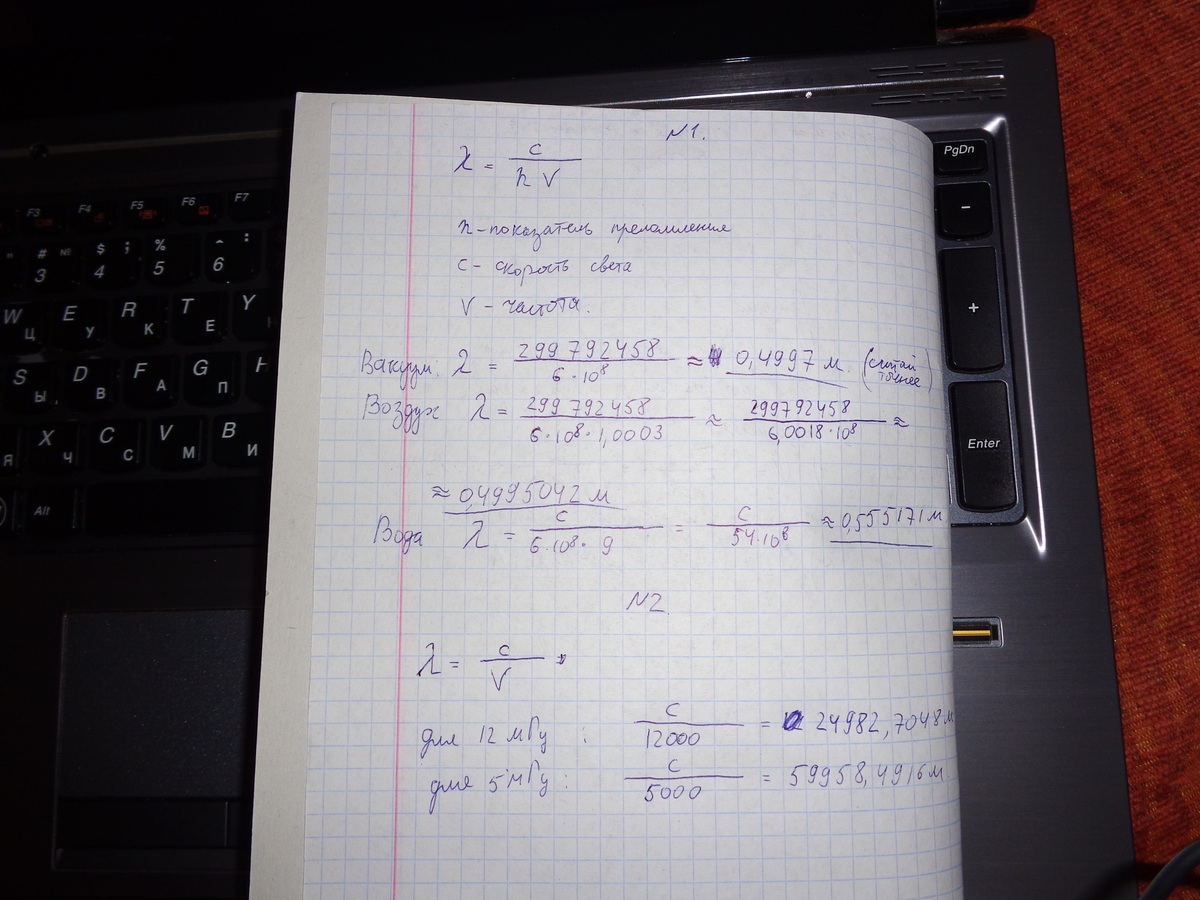 N1.
λ = c / n ν
n – показатель преломления
c – скорость света
V – частота.
Вакуум: λ = 299 792 458 / 6·10⁸ ≈ 0,4997 м. (считай точнее)
Воздух λ = 299 792 458 / 6·10⁸·1,0003 ≈ 299792458 / 6,0018·10⁸ ≈
≈ 0,4995042 м
Вода λ = c / 6·10⁸·9 = c / 54·10⁸ ≈ 0,555171 м
N2.
λ = c / V
для 12 мГц : c / 12000 = 24982,7048 м
для 5 мГц : c / 5000 = 59958,4916 м.
PgDn
–
+
Enter
F3 F4 F5 F6 F7
# № 3 $ ; 4 % 5 ^ : 6
W Ц E У R К T Е Y Н
S Ы D В F А G П
Я X Ч C С V М B И
Alt